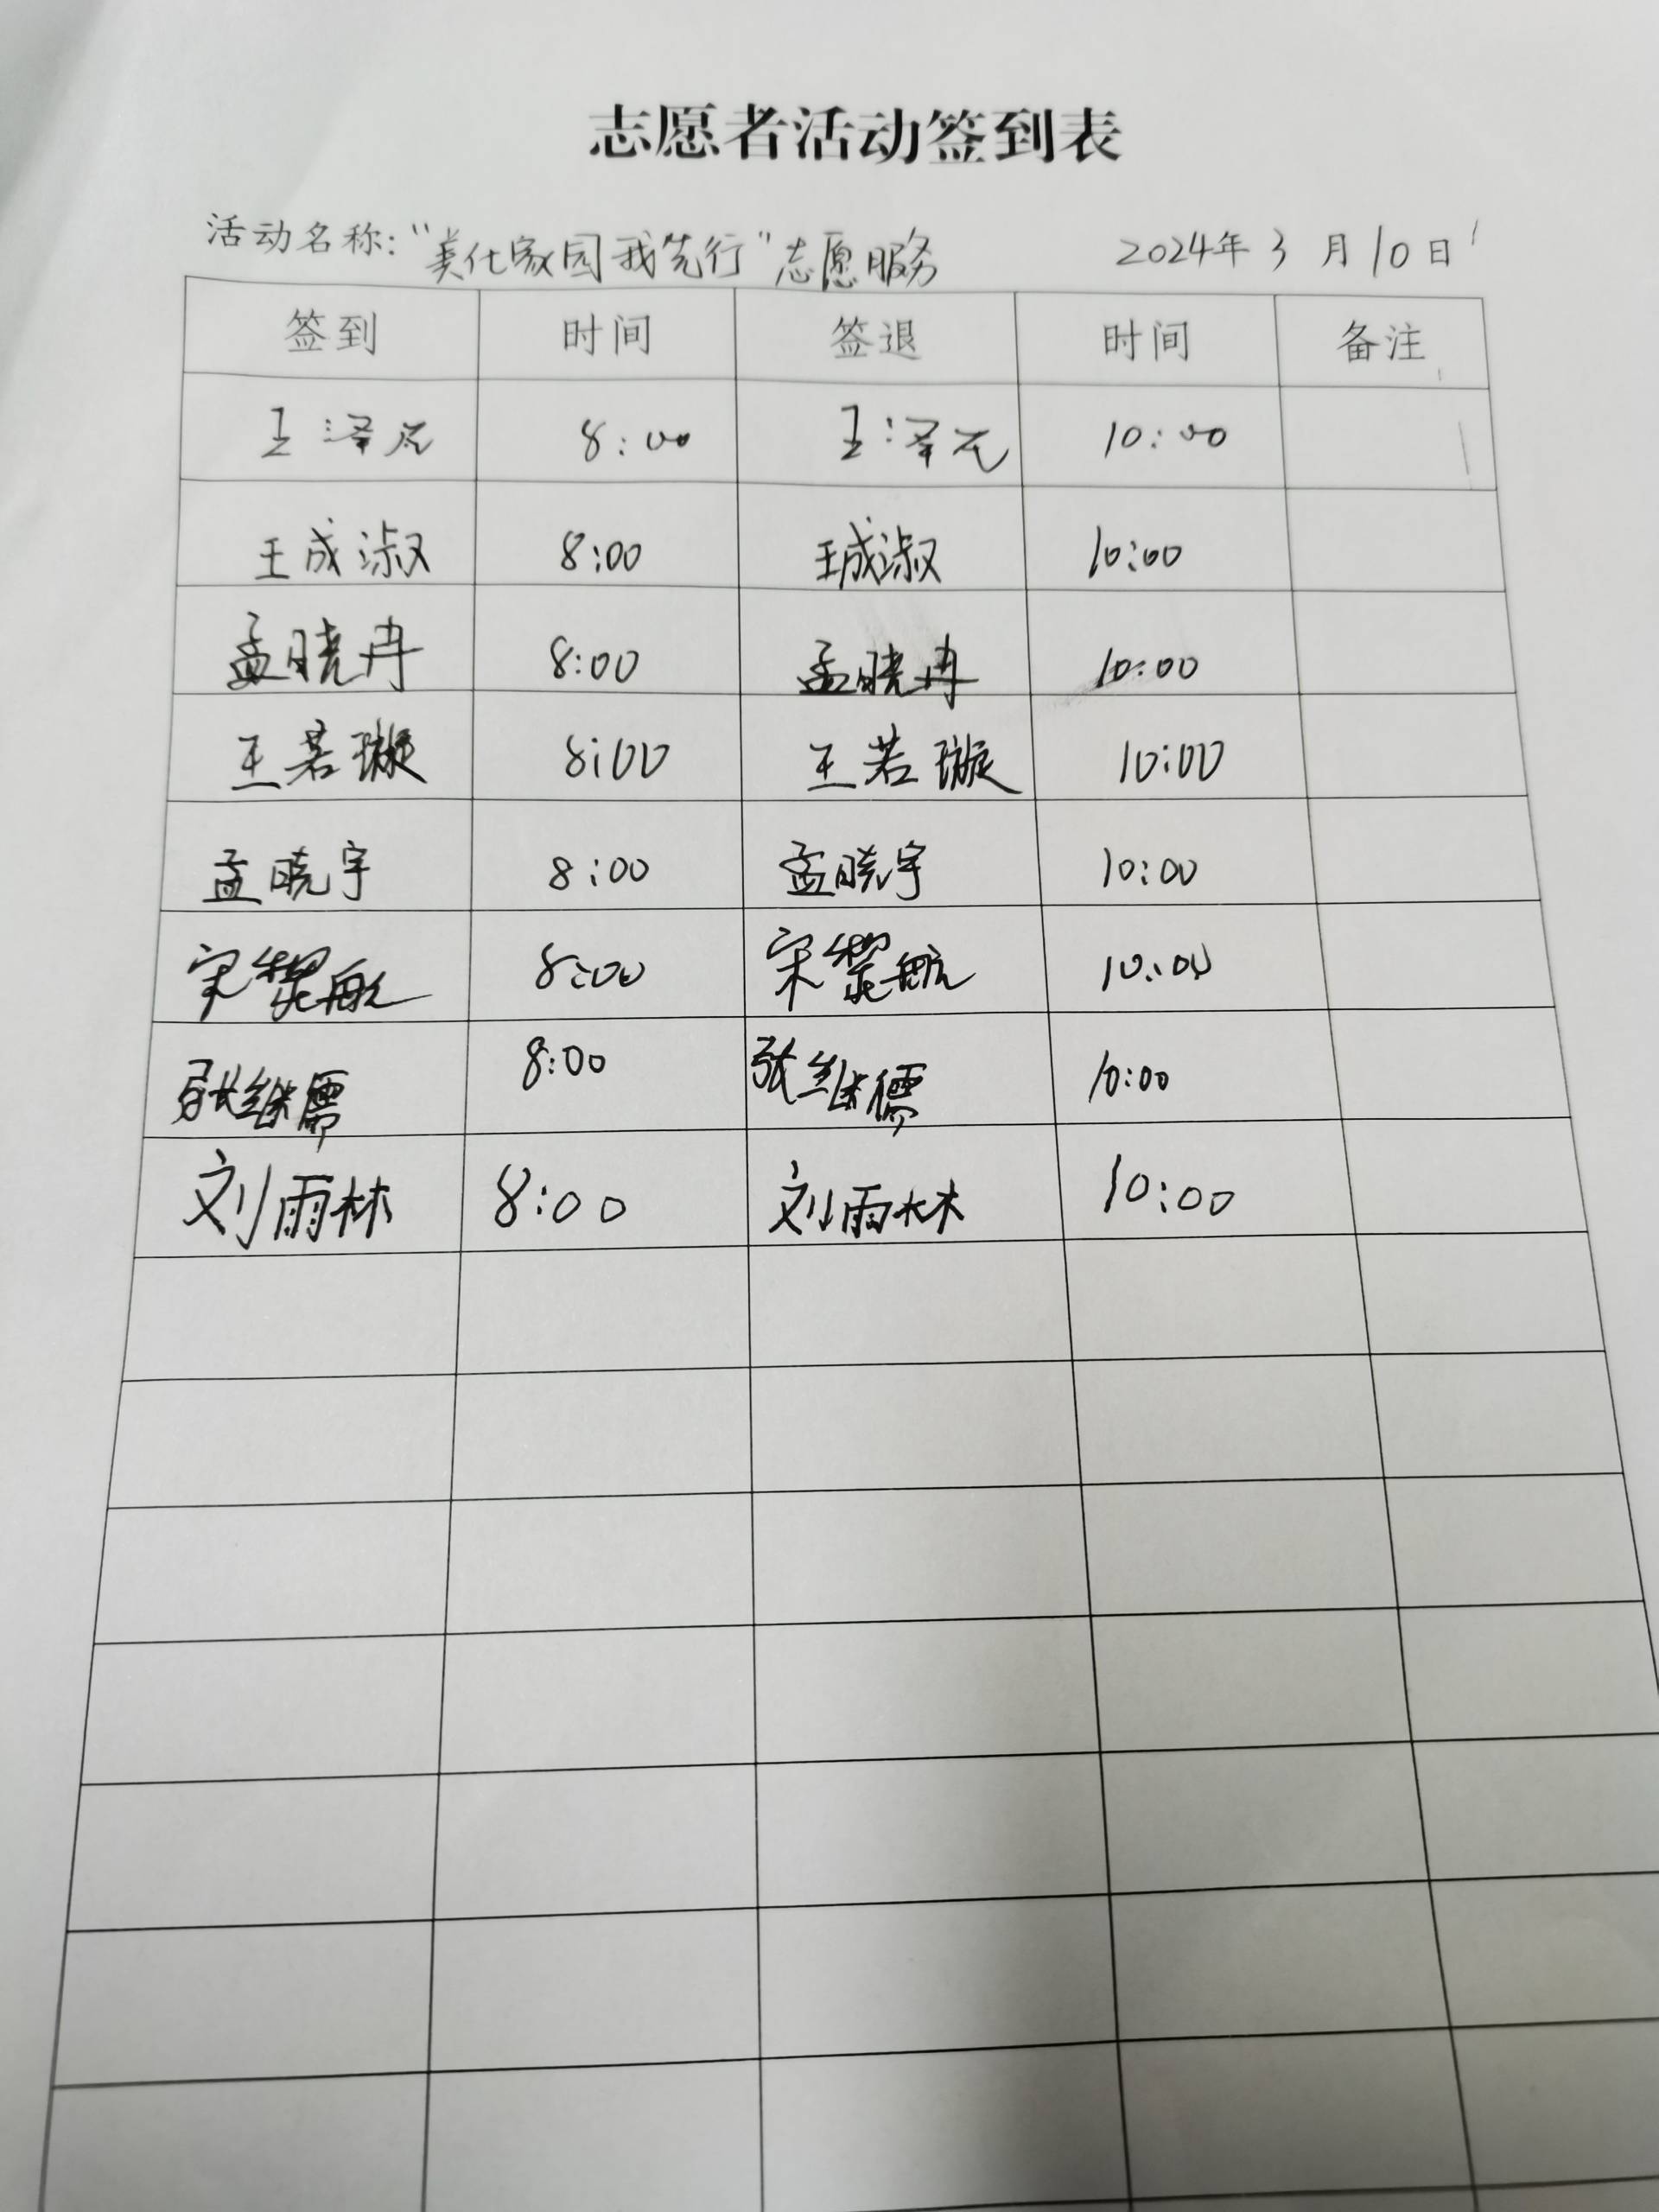 志愿者活动签到表
活动名称:“美化家园我先行”志愿服务 2024年3月10日
签到 时间 签退 时间 备注
王泽元 8:00 王泽元 10:00
王成淑 8:00 王成淑 10:00
孟晓冉 8:00 孟晓冉 10:00
王若璇 8:00 王若璇 10:00
孟晓宇 8:00 孟晓宇 10:00
宋黎航 8:00 宋黎航 10:00
张继儒 8:00 张继儒 10:00
刘雨林 8:00 刘雨林 10:00